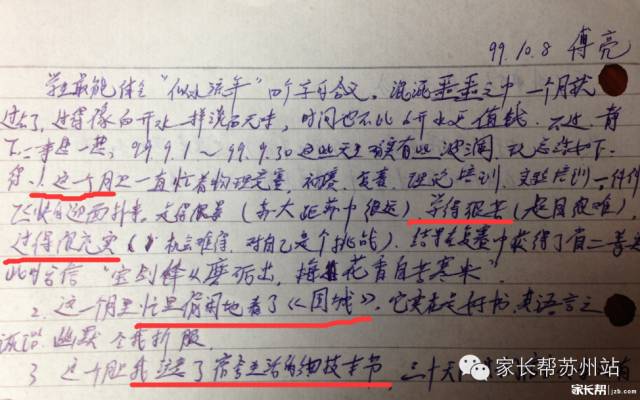 99.10.8 傅亮
学生最能体会“似水流年”四个字的含义。混混噩噩之中一个月就
过去了,过得像白开水一样淡而无味,时间也不比白开水更值钱。不过静
下心来想一想,99.9.1~99.9.30这些天里确实有些波澜,现总结如下
1. 这个月里一直忙着物理竞赛,初赛、复赛、理论培训、实验培训一件件
飞快的迎面扑来,走得很累(苏大距苏中很远)学得很苦(题目很难),
过得很充实(机会难得,对自己是个挑战)。结果在复赛中获得了省二等奖
此时省信“宝剑锋从磨砺出,梅花香自苦寒来”。
2. 这一个月里忙里偷闲地看了《围城》,它实在是好书,其语言之
诙谐幽默令我折服。
3 这个月里我 了宿舍生活的细枝末节,三十天
家长帮苏州站
家长帮 jzb.com